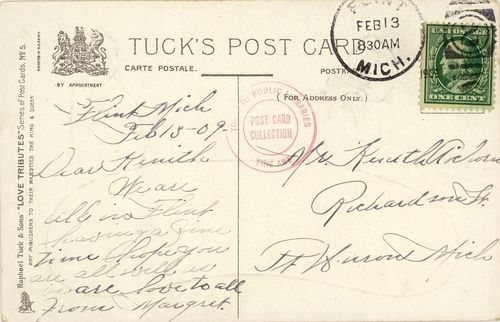 TUCK'S POST CARD
CARTE POSTALE.
POSTKA
BY APPOINTMENT
(FOR ADDRESS ONLY.)
Raphael Tuck & Sons' "LOVE TRIBUTES" Series of Post Cards. No 5.
ART PUBLISHERS TO THEIR MAJESTIES THE KING & QUEEN
FLINT
FEB 13
830AM
MICH.
U.S. POSTAGE
ONE CENT
TORONTO PUBLIC LIBRARIES
POST CARD
COLLECTION
FINE ART
Flint Mich
Feb 13-09.
Dear Kenith
We are
all in Flint
having a fine
time I hope you
are all well as
we are love to all
From Margret.
Mr. Kenith
Richardson St.
Pt Huron Mich